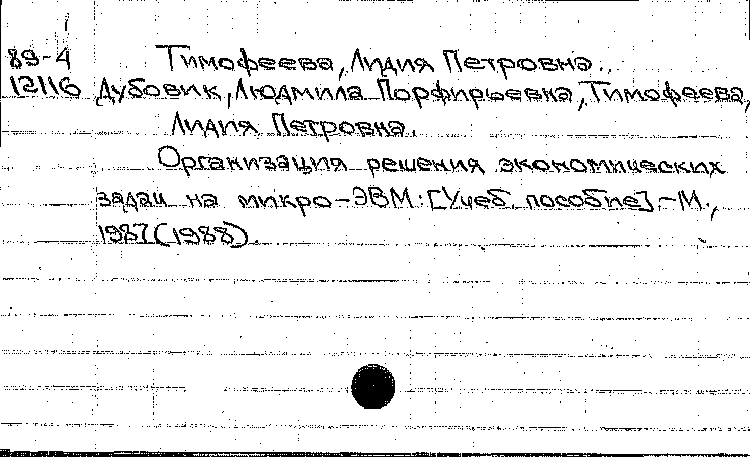 89-4 Тимофеева, Лидия Петровна.
12116 Дубовик, Людмила Порфирьевна, Тимофеева,
Лидия Петровна.
Организация решения экономических
задач на микро-ЭВМ: [Учеб. пособие].-М.,
1987(1988).